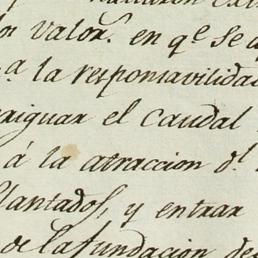 valor. en qᵉ se
a la responsavilidad
el caudal
á la atraccion d.ˡ
plantados, y entrar
de la fundacion de